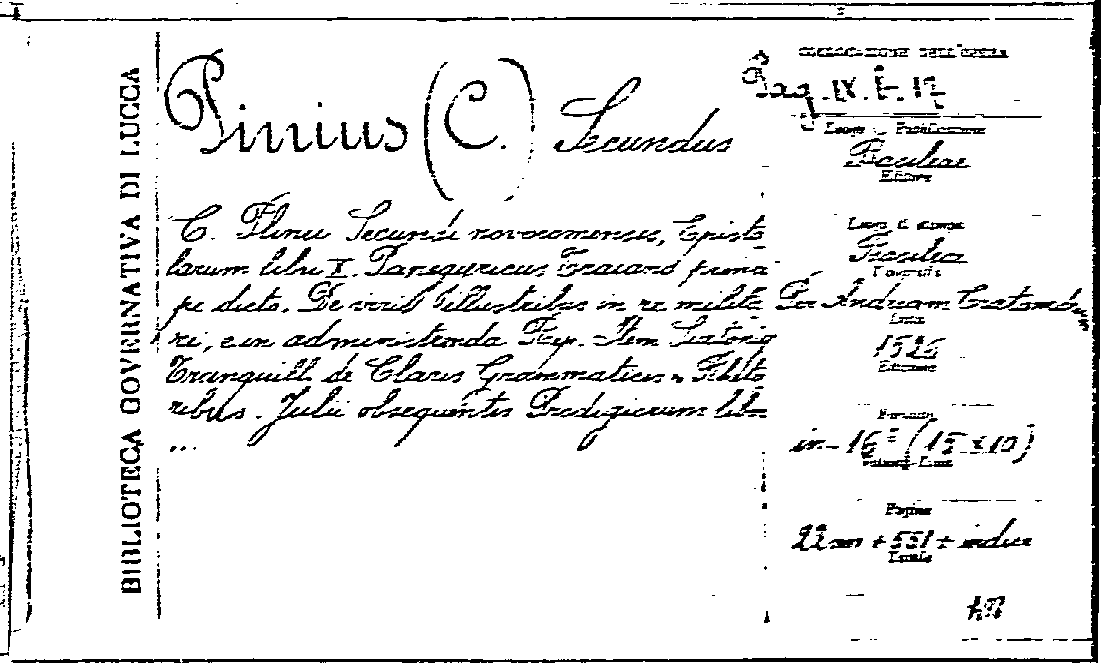 BIBLIOTECA GOVERNATIVA DI LUCCA
Plinius (C.) Secundus
C. Plinii Secundi novocomensis, Episto
larum libri X. Panegyricus Traiano princi
pi dicto. De viris illustribus in re milita
ri, e in administranda Rep. Item Suetonio
Tranquilli de Claris Grammaticis
ribus. Julii obsequentis Prodigiorum lib
...
COLLOCAZIONE DELL'OPERA
Pag. IX. F. 17
Luogo Pubblicazione
Basileae
Editore
Luogo di stampa
Basilea
Tipografia
Per Andream Cratandrum
Data
1526
Edizione
Formato
in-16° (15 x 10)
Pagine
22 nn + 551 + indice
Tavole